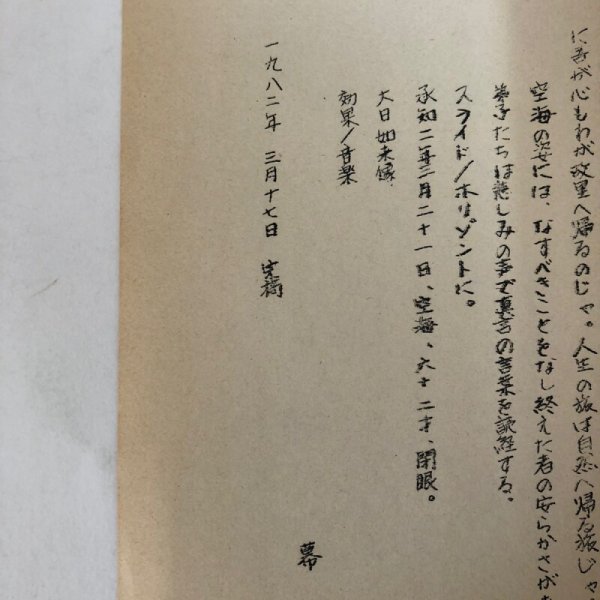 に吾が心もわが故里へ帰るのじゃ。人生の旅は自然へ帰る旅じゃ。
空海の姿には、なすべきことをなし終えた者の安らかさがあ
弟子たちは悲しみの声で真言の言葉を読経する。
スライド/ホリゾントに。
承和二年三月二十一日、空海、六十二才、閉眼。
大日如来像
効果/音楽
一九八二年 三月十七日 完稿
幕